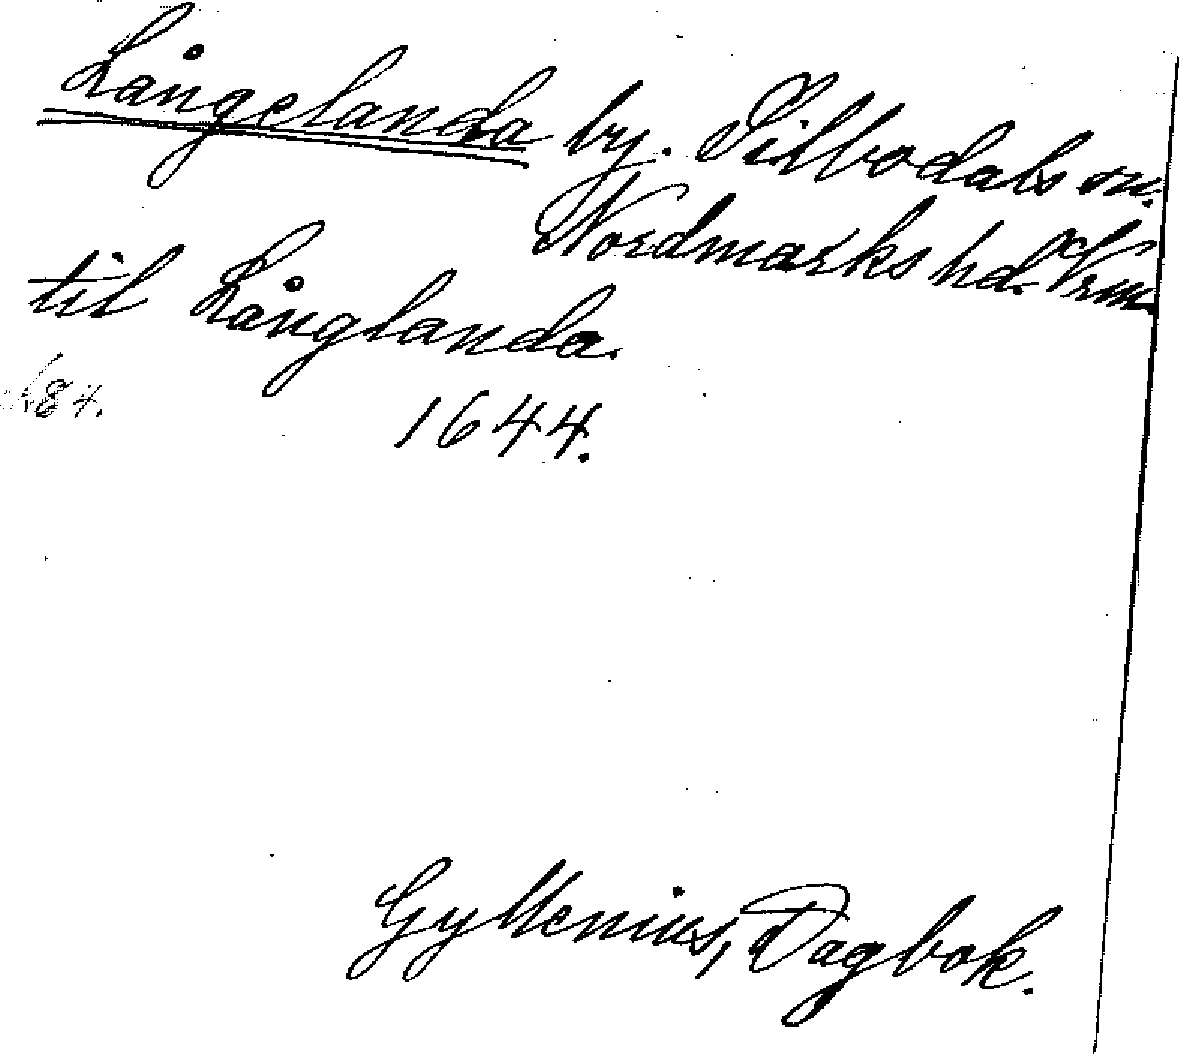 Långelanda by. Silbodals sn.
Nordmarks hd. Vrm.
til Långlanda.
84.
1644.
Gyllenius, Dagbok.